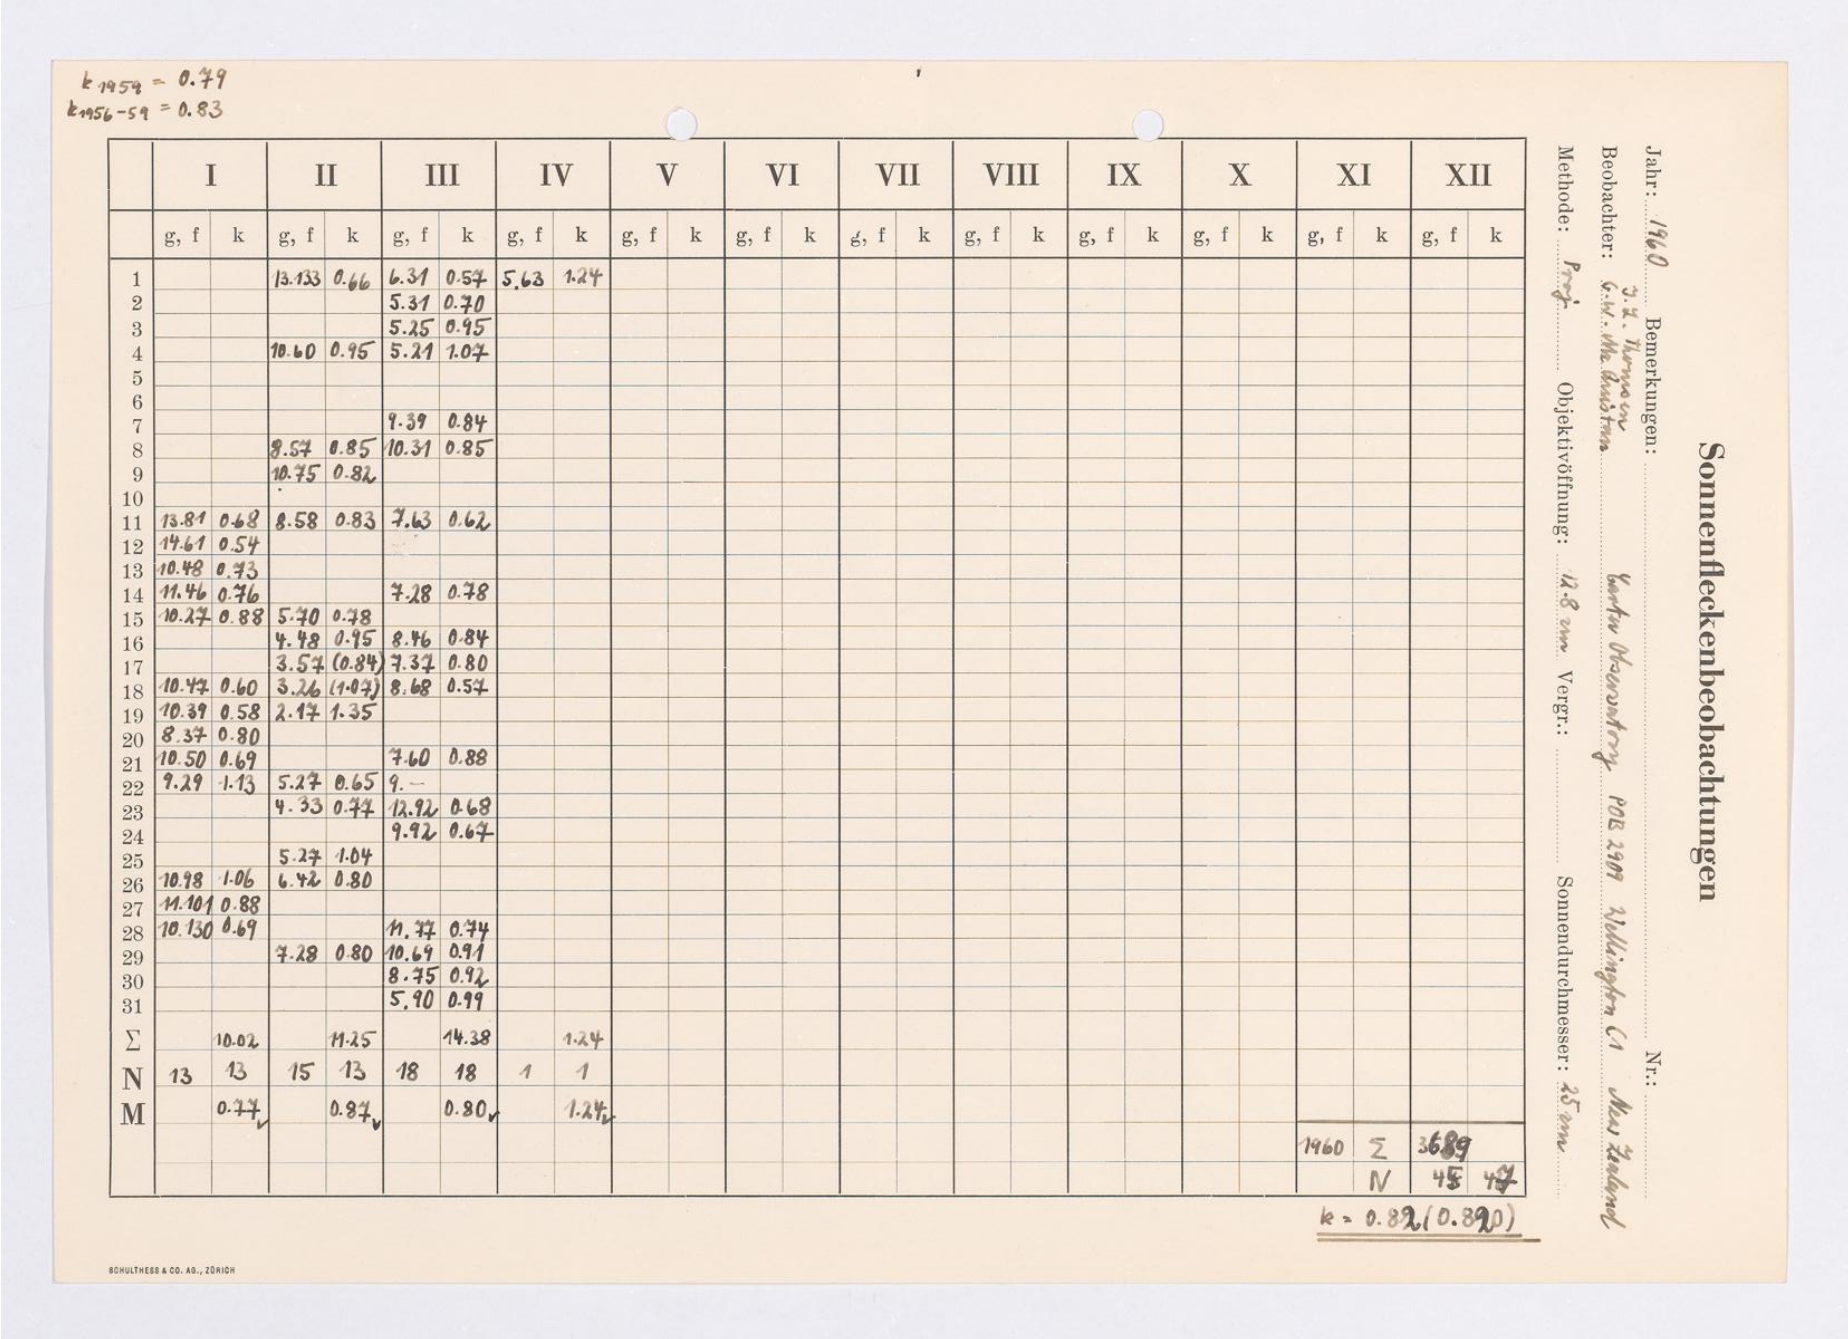 k 1959 = 0.79
k 1956-59 = 0.83
Sonnenfleckenbeobachtungen
Jahr: 1960 Bemerkungen: Nr.:
Beobachter: I. L. Thomsen
G. W. Carter Observatory POB 2909 Wellington C1 New Zealand
Methode: Proj. Objektivöffnung: 12.8 cm Vergr.: Sonnendurchmesser: 25 cm
I II III IV V VI VII VIII IX X XI XII
g, f k g, f k g, f k g, f k g, f k g, f k g, f k g, f k g, f k g, f k g, f k g, f k
1 13.133 0.66 6.31 0.57 5.63 1.24
2 5.31 0.70
3 5.25 0.95
4 10.60 0.95 5.21 1.07
5
6
7 9.39 0.84
8 8.57 0.85 10.31 0.85
9 10.75 0.82
10
11 13.81 0.68 8.58 0.83 7.63 0.62
12 14.61 0.54
13 10.48 0.73
14 11.46 0.76 7.28 0.78
15 10.27 0.88 5.70 0.78
16 4.48 0.95 8.46 0.84
17 3.57 (0.84) 7.37 0.80
18 10.47 0.60 3.26 (1.07) 8.68 0.57
19 10.39 0.58 2.17 1.35
20 8.37 0.80
21 10.50 0.69 7.60 0.88
22 9.29 1.13 5.27 0.65 9.—
23 4.33 0.77 12.92 0.68
24 9.92 0.67
25 5.27 1.04
26 10.98 1.06 6.42 0.80
27 11.101 0.88
28 10.130 0.69 11.77 0.74
29 7.28 0.80 10.69 0.91
30 8.75 0.92
31 5.90 0.99
Σ 10.02 11.25 14.38 1.24
N 13 13 15 13 18 18 1 1
M 0.77 0.87 0.80 1.24
1960 Σ 3689
N 45 47
k = 0.82 (0.820)
SCHULTHESS & CO. AG., ZÜRICH